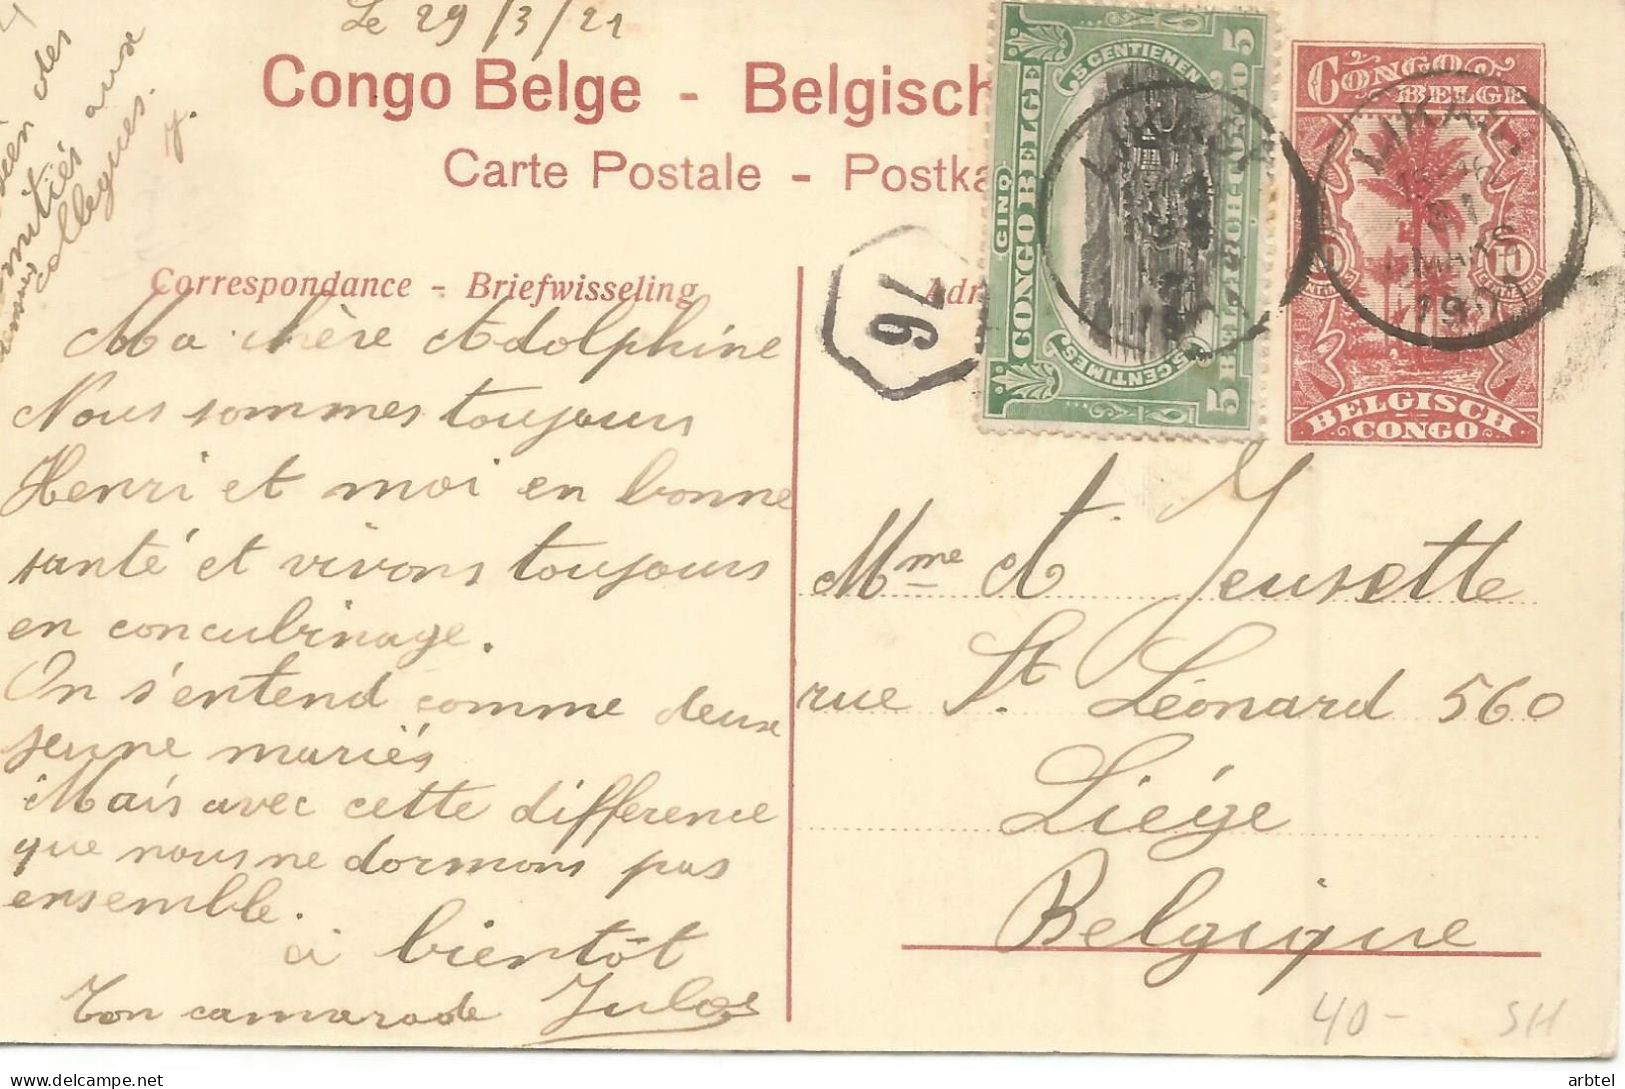 Le 29/3/21
bien des
amitiés aux
collegues.
J.
Congo Belge - Belgisch
Carte Postale - Postka
Correspondance - Briefwisseling
Adr
Ma chère Adolphine
Nous sommes toujours
Henri et moi en bonne
santé et vivons toujours
en concubinage.
On s'entend comme deux
jeune mariés
Mais avec cette différence
que nous ne dormons pas
ensemble.
à bientôt
Ton camarade Jules
76
5 CENTIEMEN 5
CINQ
CONGO BELGE
BELGISCH CONGO
5 CENTIMES 5
CONGO
BELGE
BELGISCH
CONGO
LIKASI
MARS
Mme A. Jeusette
rue St. Léonard 560
Liége
Belgique
40- SH
arbtel